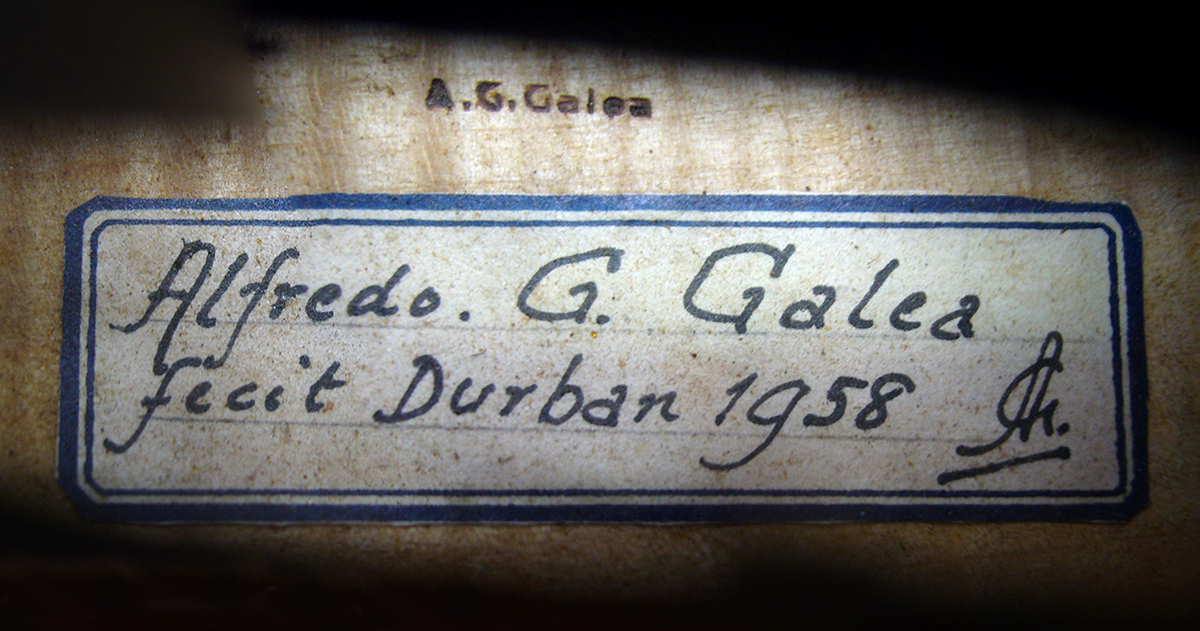 A.G.Galea
Alfredo. G. Galea
fecit Durban 1958